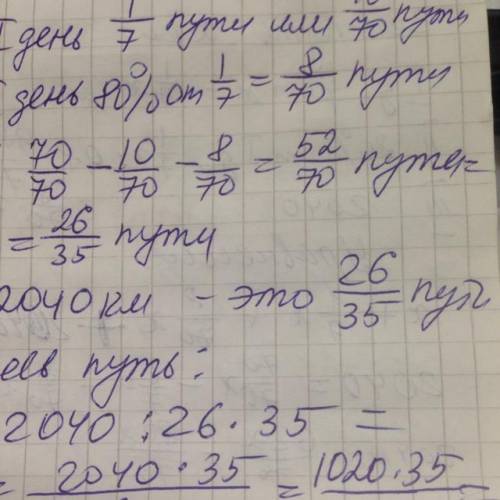 I день 1/7 пути или 10/70 пути
день 80% от 1/7 = 8/70 пути
70/70 - 10/70 - 8/70 = 52/70 пути=
= 26/35 пути
2040 км - это 26/35 пути
весь путь:
2040 : 26 · 35 =
= 2040 · 35 = 1020 · 35